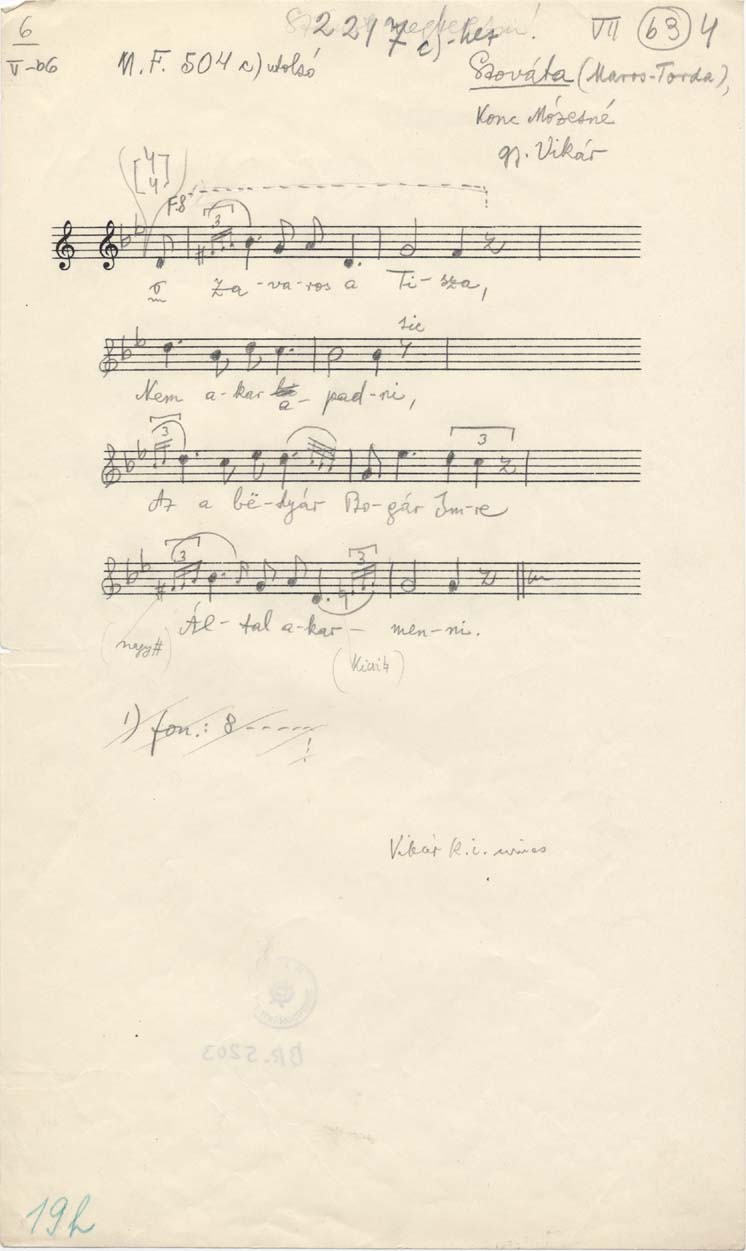 6
V-b6
2217 c)-hez
VII 63 4
M.F. 504 c) utolsó
Szováta (Maros-Torda),
Konc Mózesné
gy. Vikár
[4/4]
F.8
3
Ő Za-va-ros a Ti-sza,
sic
Nem a-kar a-pad-ni,
3 3
Az a bë-tyár Bo-gár Im-re
3 3
Ál-tal a-kar- men-ni.
(nagy #)
(Kicsi ♮)
1) fon.: 8 -----
Vikár K.i. nincs
BR. 5203
19h